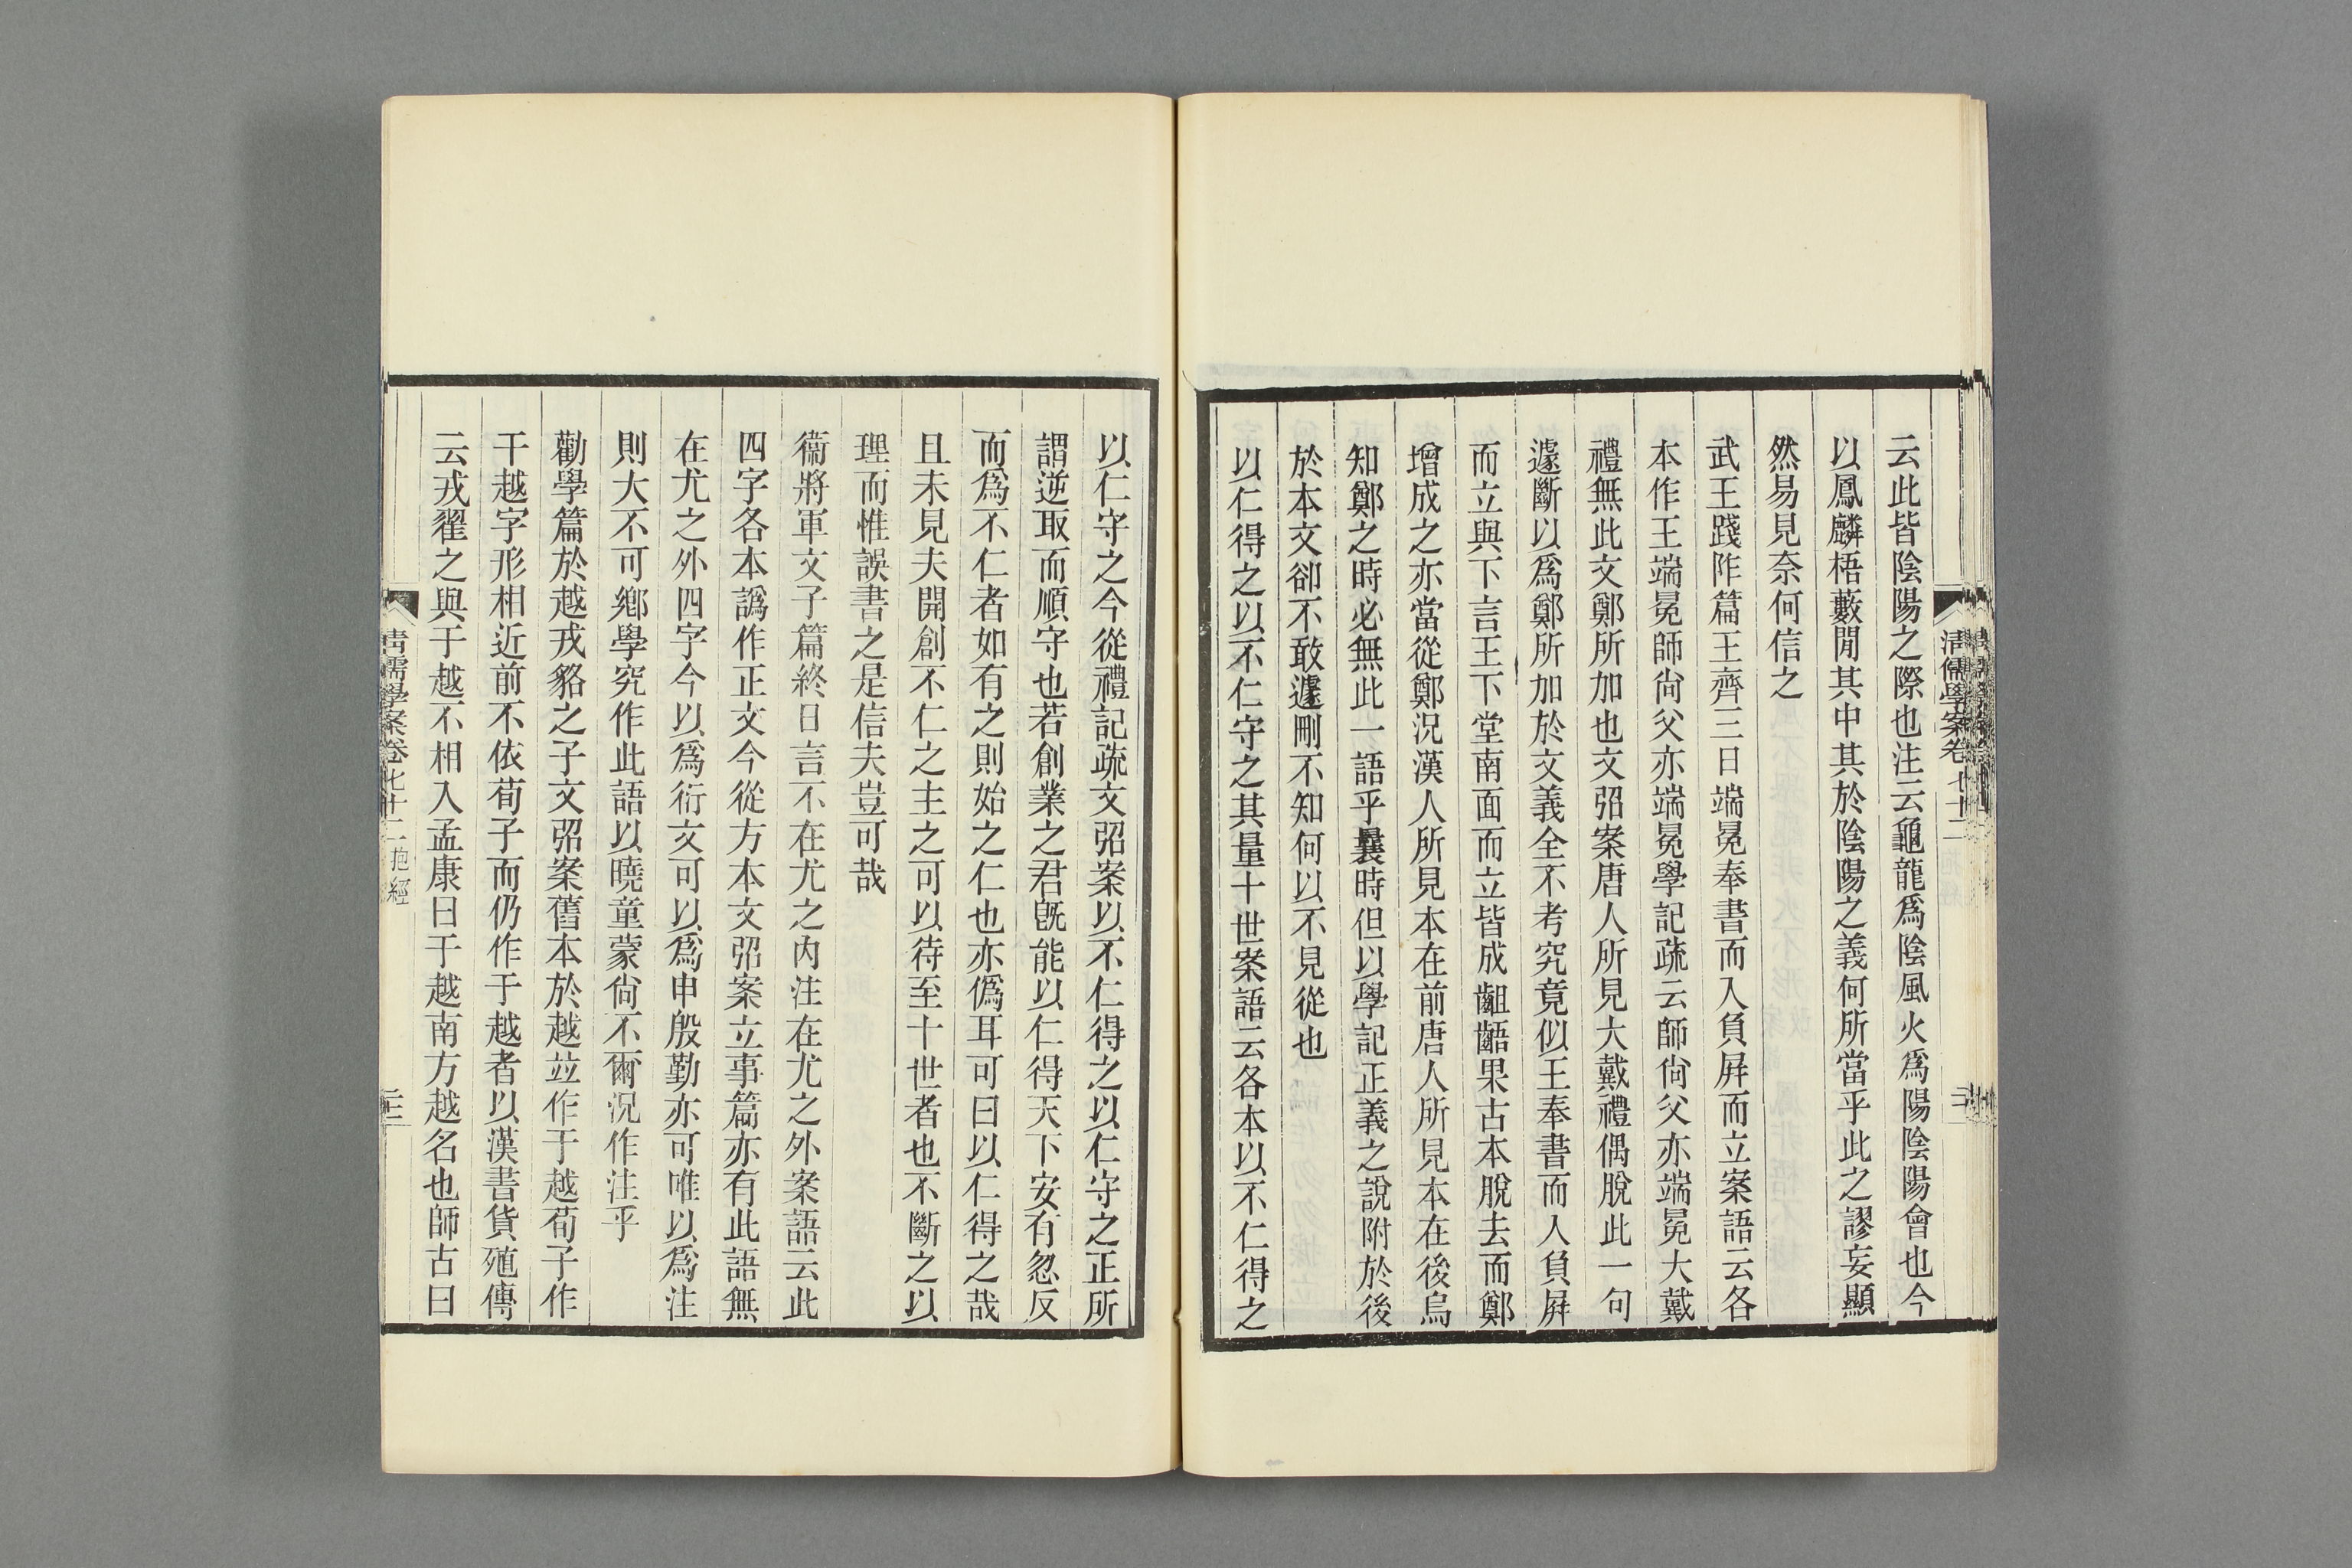 云此皆陰陽之際也注云龜龍爲陰風火爲陽陰陽會也今
以鳳麟梧藪閒其中其於陰陽之義何所當乎此之謬妄顯
然易見奈何信之
武王踐阼篇王齊三日端冕奉書而入負屛而立案語云各
本作王端冕師尙父亦端冕學記疏云師尙父亦端冕大戴
禮無此文鄭所加也文弨案唐人所見大戴禮偶脫此一句
遽斷以爲鄭所加於文義全不考究竟似王奉書而入負屛
而立與下言王下堂南面而立皆成齟齬果古本脫去而鄭
增成之亦當從鄭況漢人所見本在前唐人所見本在後烏
知鄭之時必無此一語乎曩時但以學記正義之說附於後
於本文卻不敢遽刪不知何以不見從也
以仁得之以不仁守之其量十世案語云各本以不仁得之
以仁守之今從禮記疏文弨案以不仁得之以仁守之正所
謂逆取而順守也若創業之君旣能以仁得天下安有忽反
而爲不仁者如有之則始之仁也亦僞耳可曰以仁得之哉
且未見夫開創不仁之主之可以待至十世者也不斷之以
理而惟誤書之是信夫豈可哉
衞將軍文子篇終日言不在尤之內注在尤之外案語云此
四字各本譌作正文今從方本文弨案立事篇亦有此語無
在尤之外四字今以爲衍文可以爲申殷勤亦可唯以爲注
則大不可鄉學究作此語以曉童蒙尙不爾況作注乎
勸學篇於越戎貉之子文弨案舊本於越竝作于越荀子作
干越字形相近前不依荀子而仍作于越者以漢書貨殖傳
云戎翟之與于越不相入孟康曰于越南方越名也師古曰
清儒學案卷七十二
清儒學案卷七十二 抱經